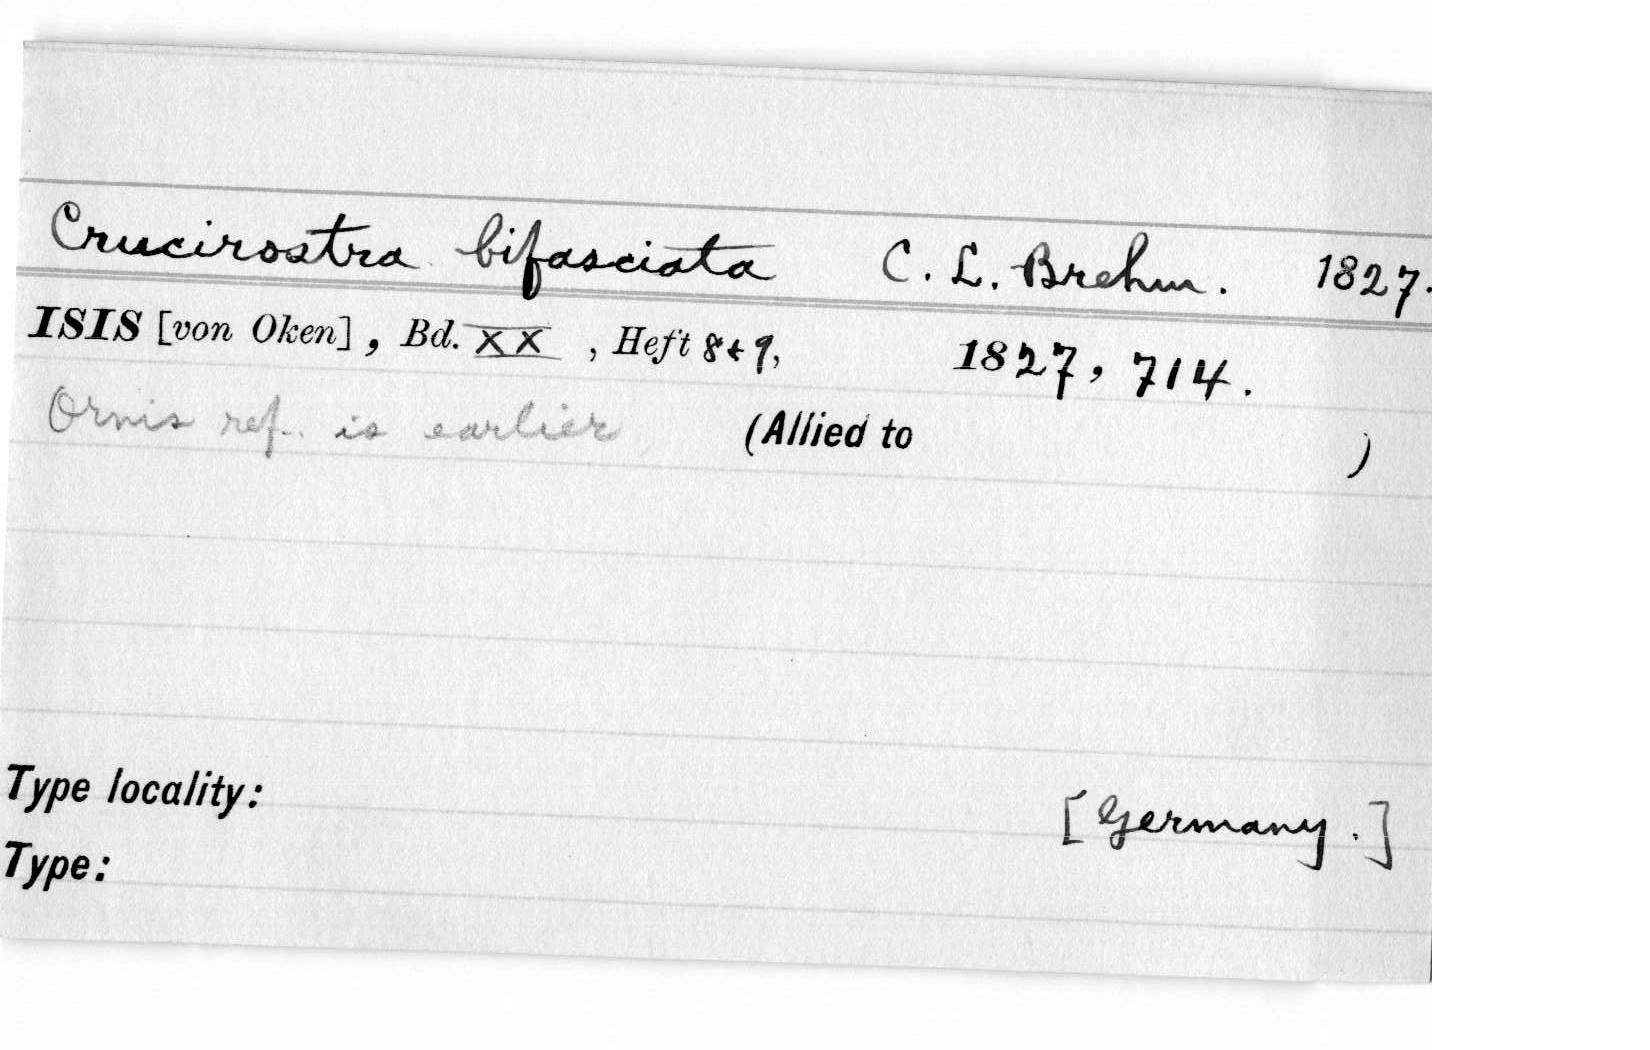 Crucirostra bifasciata C. L. Brehm. 1827.
ISIS [von Oken], Bd. XX, Heft 8+9, 1827, 714.
Ornis ref. is earlier (Allied to )
Type locality: [Germany.]
Type: